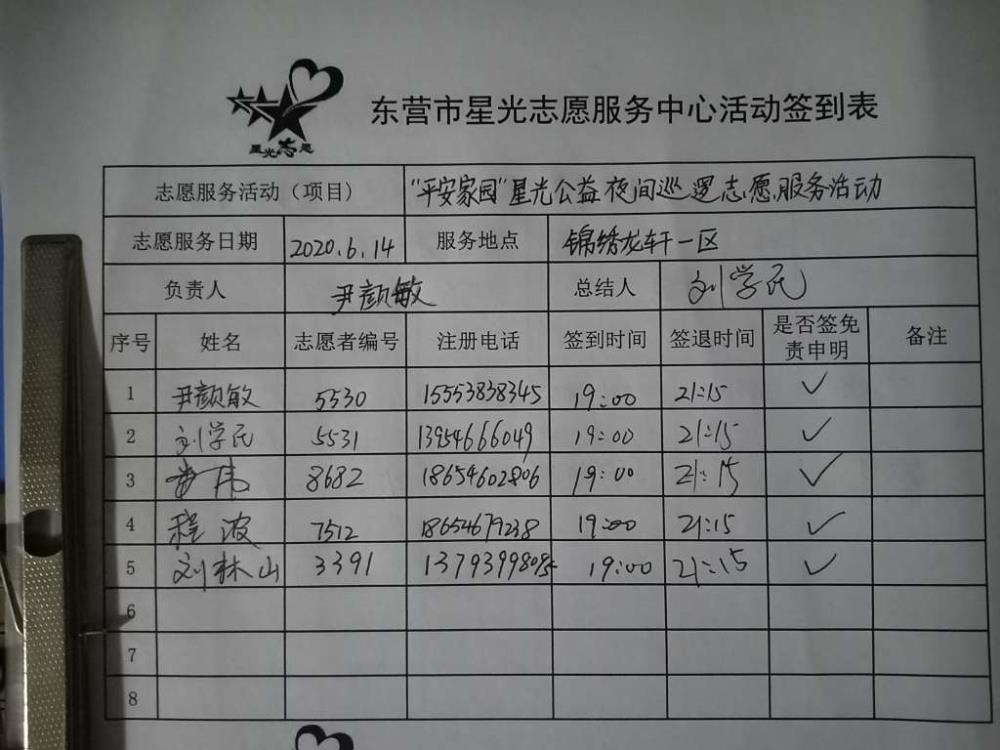 星光志愿
东营市星光志愿服务中心活动签到表
志愿服务活动（项目） "平安家园"星光公益夜间巡逻志愿服务活动
志愿服务日期 2020.6.14 服务地点 锦绣龙轩一区
负责人 尹颜敏 总结人 刘学民
序号 姓名 志愿者编号 注册电话 签到时间 签退时间 是否签免责申明 备注
1 尹颜敏 5530 15553838345 19:00 21:15 ✓
2 刘学民 5531 13954666049 19:00 21:15 ✓
3 伟 8682 18654602806 19:00 21:15 ✓
4 程波 7512 18654679238 19:00 21:15 ✓
5 刘林山 3391 19:00 21:15 ✓
6
7
8